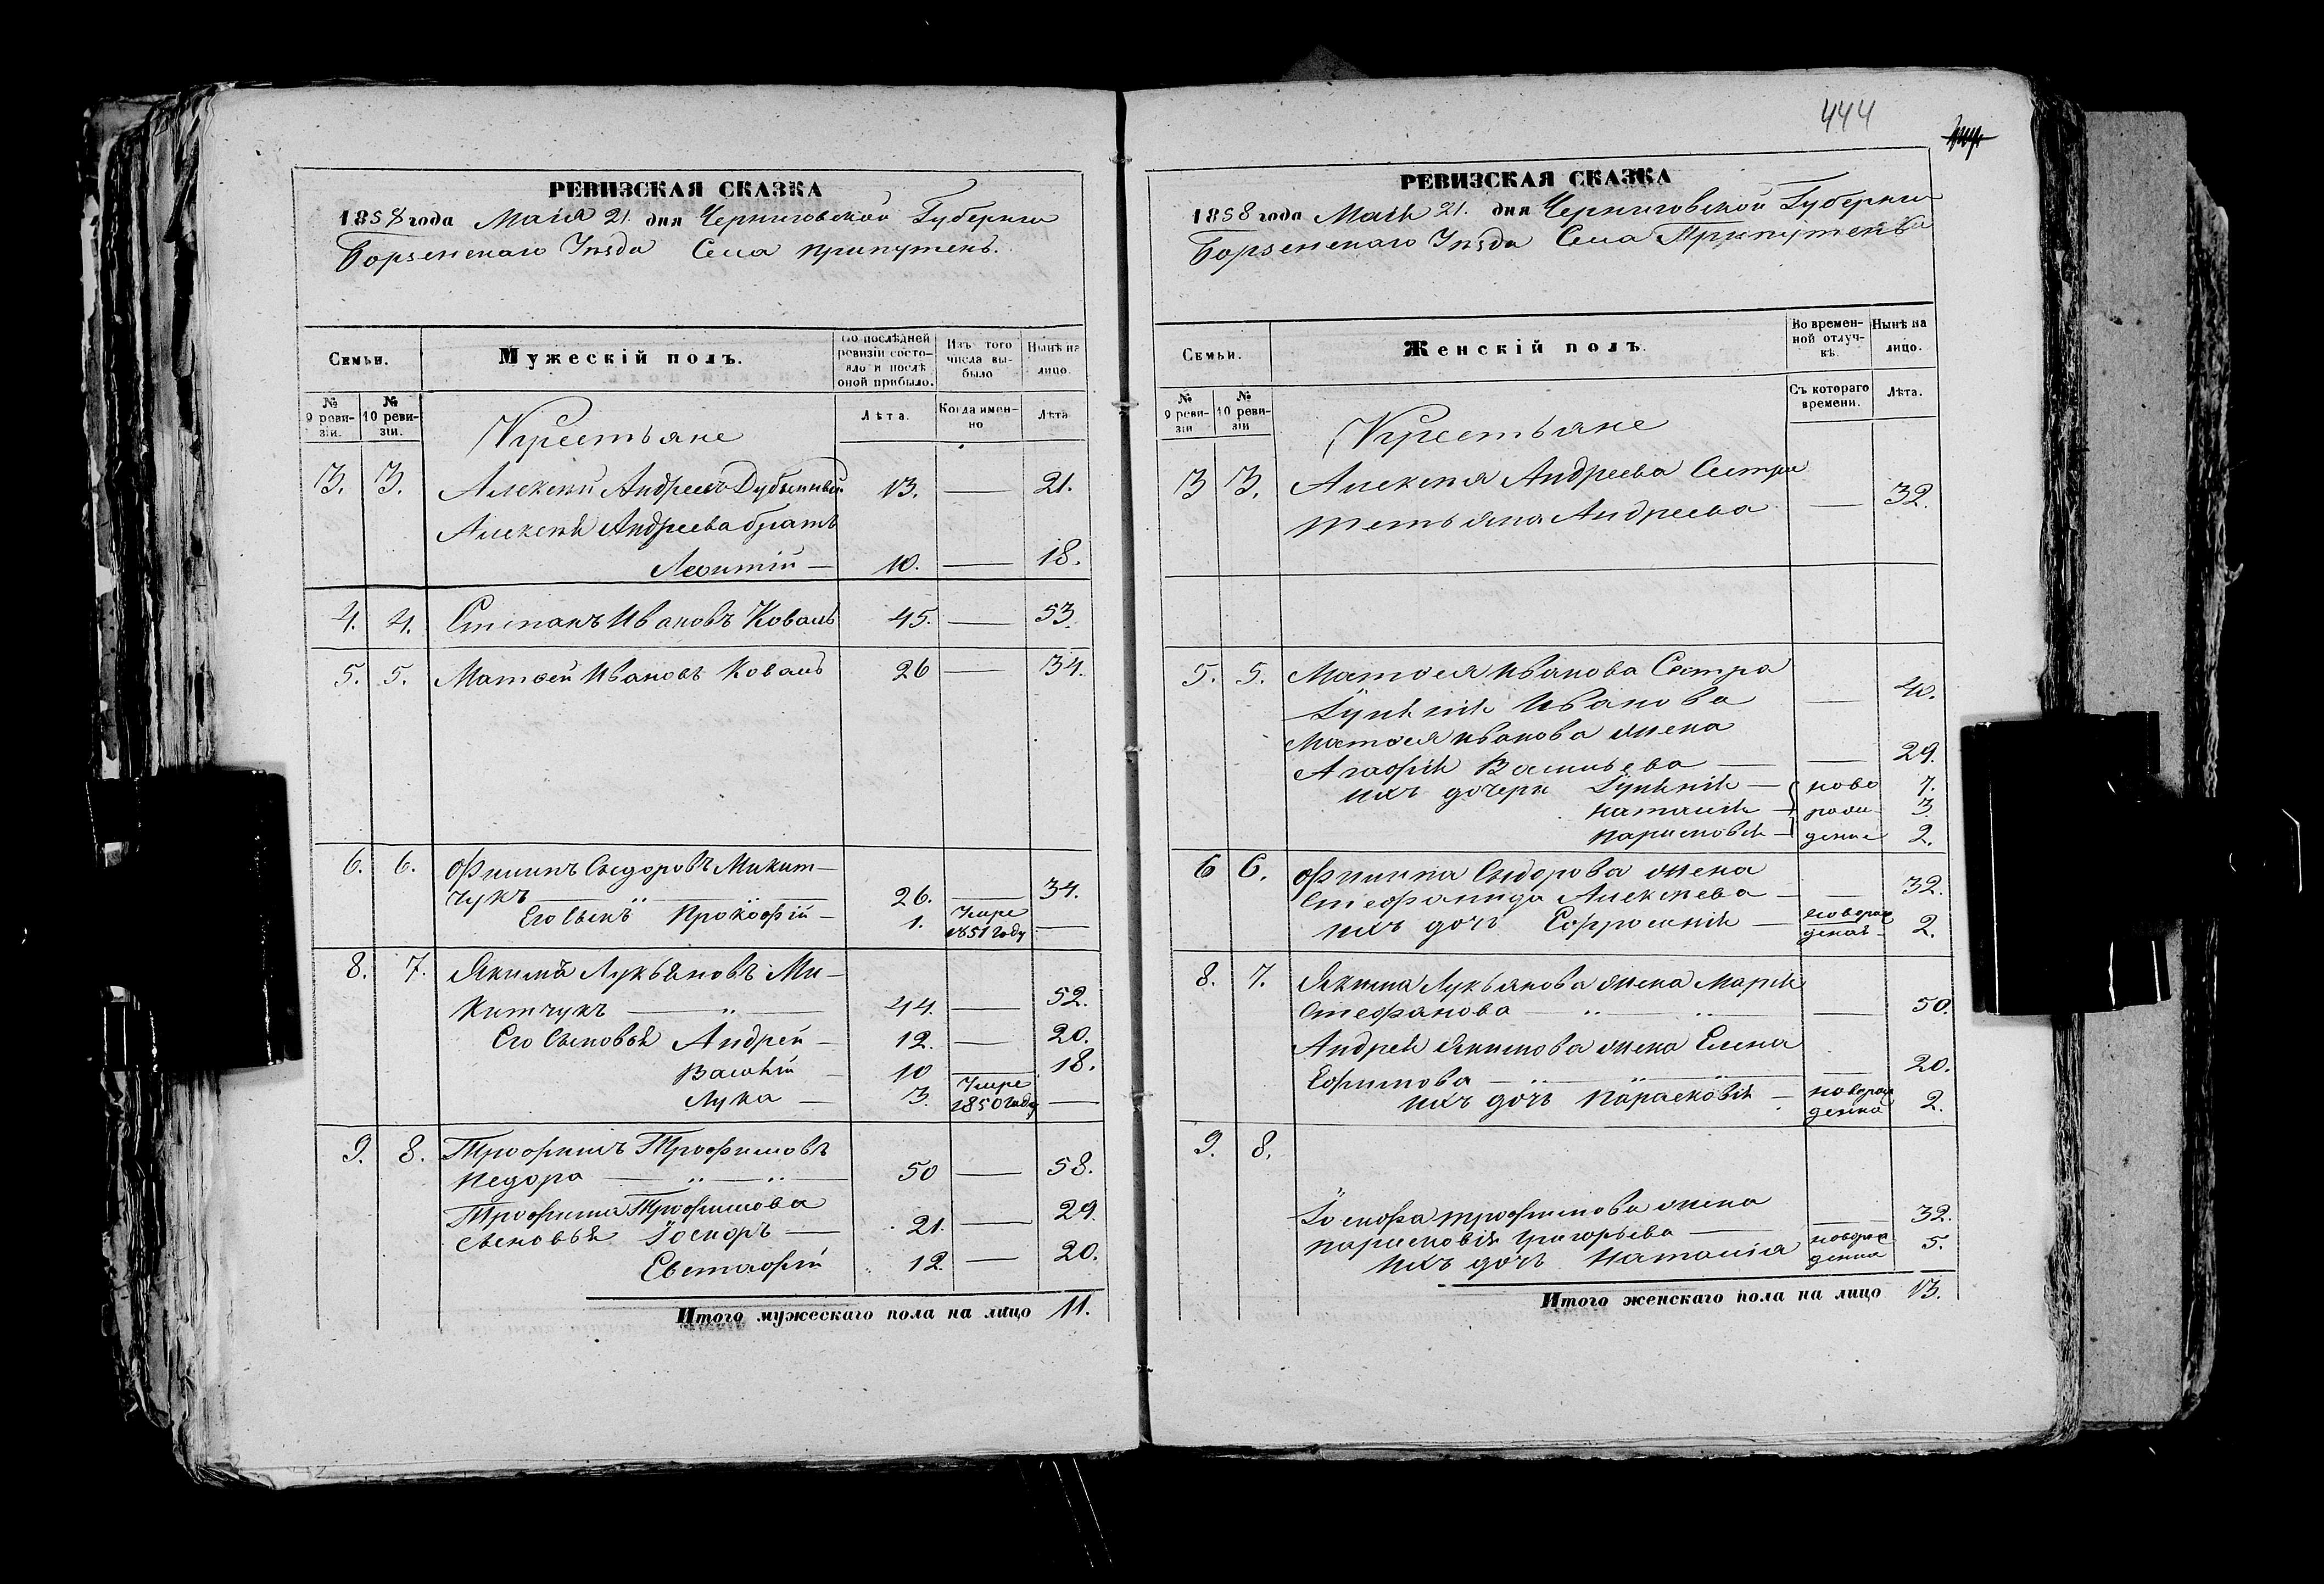 РЕВИЗСКАЯ СКАЗКА
1858 года Маія 21. дня Черниговской Губерніи
Борзенскаго Уѣзда Села Припутень.
Семьи.
Мужескій полъ.
По послѣдней ревизіи состояло и послѣ оной прибыло.
Изъ того числа выбыло
Нынѣ на лицо.
№ 9 ревизіи.
№ 10 ревизіи.
Лѣта.
Когда именно
Лѣта
Крестьяне
3. 3. Алексѣй Андреевъ 13. — 21.
Алексѣя Андреева братъ
Леонтій — 10. — 18.
4. 4. Степанъ Ивановъ Коваль 45. — 53.
5. 5. Матвей Ивановъ Коваль 26 — 34.
6. 6. Филипъ Сыдоровъ Микит-
чукъ 26. — 34.
Его Сынъ Прокофій — 1. Умре 1851 году —
8. 7. Якимъ Лукьяновъ Ми-
китчукъ 44. — 52.
Его Сыновья Андрей — 12. — 20.
Василій — 10 — 18.
Лука — 3. Умре 1850 году —
9. 8. Трофимъ Трофимовъ
Недора 50 — 58.
Трофима Трофимова
сыновья Іосифъ — 21. — 29.
Евстафій 12. — 20.
Итого мужескаго пола на лицо 11.
444
РЕВИЗСКАЯ СКАЗКА
1858 года Маія 21. дня Черниговской Губерніи
Борзенскаго Уѣзда Села Припутень
Семьи.
Женскій полъ.
Во временной отлучкѣ.
Нынѣ на лицо.
№ 9 ревизіи
№ 10 ревизіи
Съ котораго времени.
Лѣта.
Крестьяне
3 3. Алексѣя Андреева Сестра
Тетьяна Андреева — 32.
5. 5. Матвея Иванова Сестра
Іуліанія Иванова — 40.
Матвея Иванова жена
Агафія Васильева — — 29.
Ихъ дочери Іуліанія — ново 7.
Наталія — рож- 3
Парасковія — денные 2.
6 6. Филипа Сыдорова жена
Стефанида Алексѣева — — 32.
Ихъ дочь Ефросинія — новорожденая 2.
8. 7. Якима Лукьянова жена Марія
Стефанова — 50.
Андрея Якимова жена Елена
Ефимова — 20.
Ихъ дочь Парасковія — новорожденна 2.
9. 8.
Іосифа Трофимова жена
Парасковія Григорьева — — 32.
Ихъ дочь Наталія новорожденна 5.
Итого женскаго пола на лицо 13.